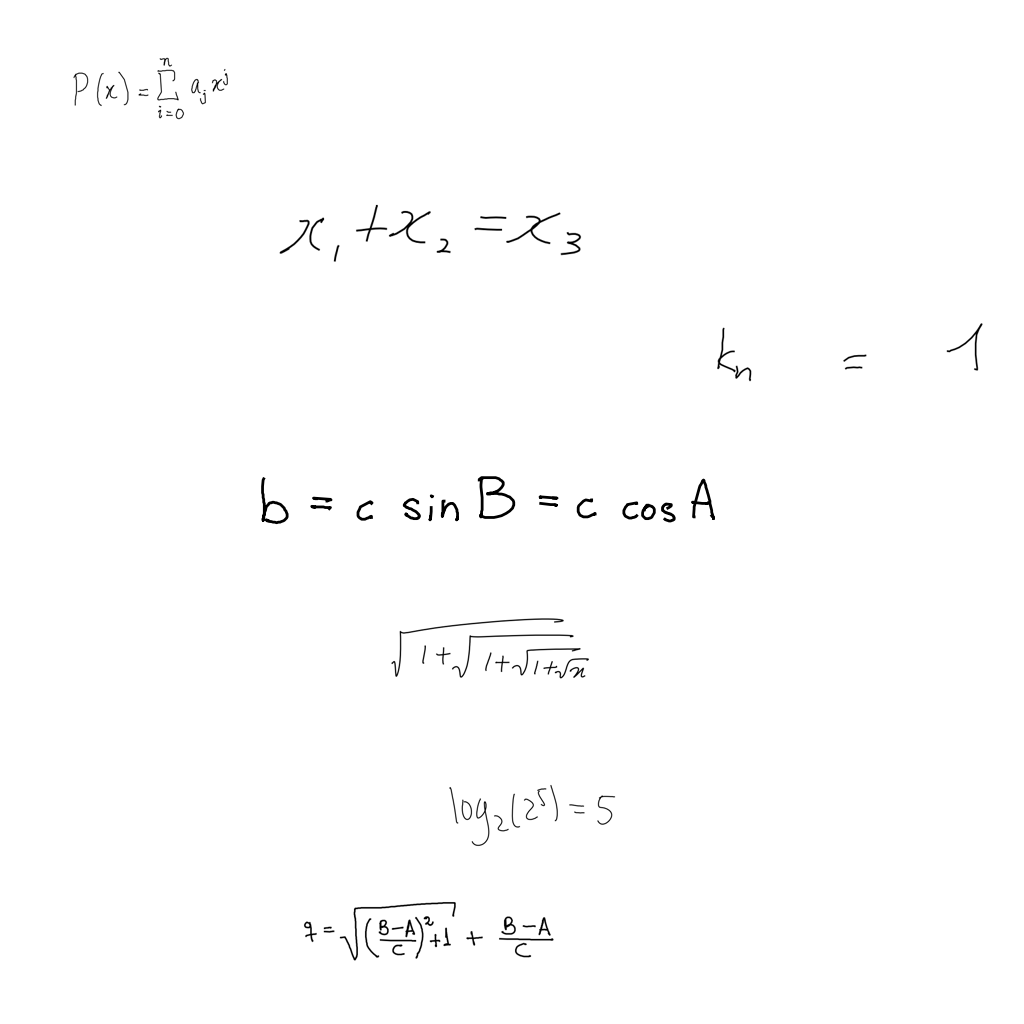 P(x) = \sum_{i=0}^{n} a_j x^j
x_1 + x_2 = x_3
k_n = 1
b = c sin B = c cos A
\sqrt{1+\sqrt{1+\sqrt{1+\sqrt{x}}}}
log_2(2^5) = 5
q = \sqrt{(\frac{B-A}{C})^2+1} + \frac{B-A}{C}